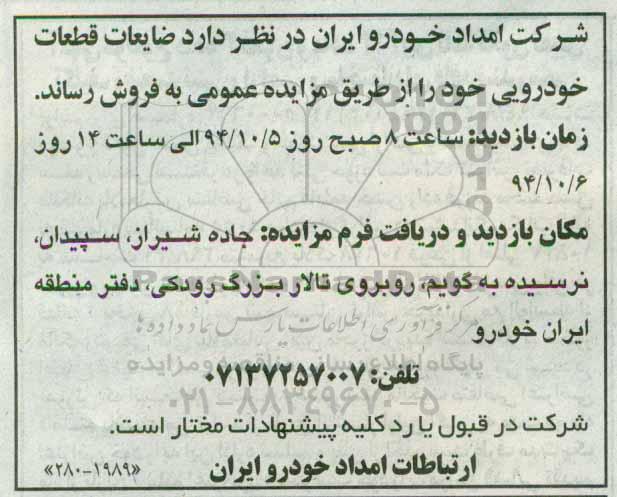 شرکت امداد خودرو ایران در نظر دارد ضایعات قطعات
خودرویی خود را از طریق مزایده عمومی به فروش رساند.
زمان بازدید: ساعت ۸ صبح روز ۹۴/۱۰/۵ الی ساعت ۱۴ روز
۹۴/۱۰/۶
مکان بازدید و دریافت فرم مزایده: جاده شیراز، سپیدان،
نرسیده به گویم، روبروی تالار بزرگ رودکی، دفتر منطقه
ParsNamadData
ایران خودرو
مرکز فرآوری اطلاعات پارس نماد داده ها
پایگاه اطلاع رسانی مناقصه و مزایده
تلفن: ۰۷۱۳۷۲۵۷۰۰۷
۰۲۱-۸۸۳۴۹۶۷۰-۵
شرکت در قبول یا رد کلیه پیشنهادات مختار است.
ارتباطات امداد خودرو ایران
«۲۸۰-۱۹۸۹»